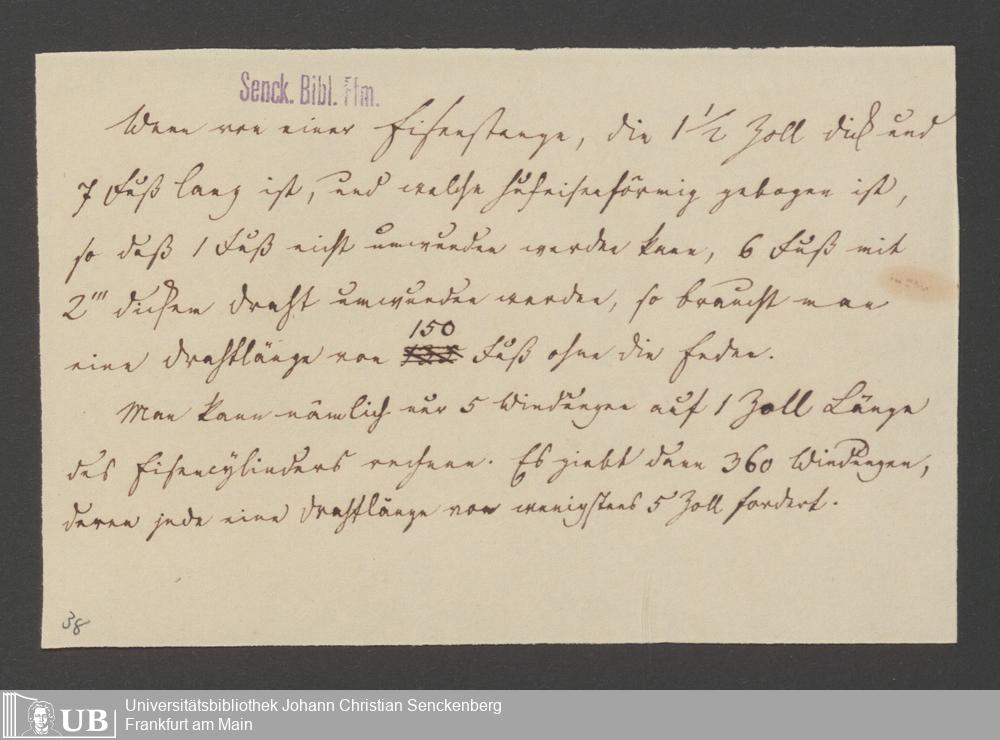 Senck. Bibl. Ffm.
Wenn von einer Eisenstange, die 1 1/2 Zoll dick und
7 Fuß lang ist, und welche hufeisenförmig gebogen ist,
so daß 1 Fuß nicht umwunden werden kann, 6 Fuß mit
2''' dickem Draht umwunden werden, so braucht man
150
eine Drahtlänge von 135 Fuß ohne die Enden.
Man kann nämlich nur 5 Windungen auf 1 Zoll Länge
des Eisencylinders rechnen. Es giebt dann 360 Windungen,
deren jede eine Drahtlänge von wenigstens 5 Zoll fordert.
38
UB
Universitätsbibliothek Johann Christian Senckenberg
Frankfurt am Main